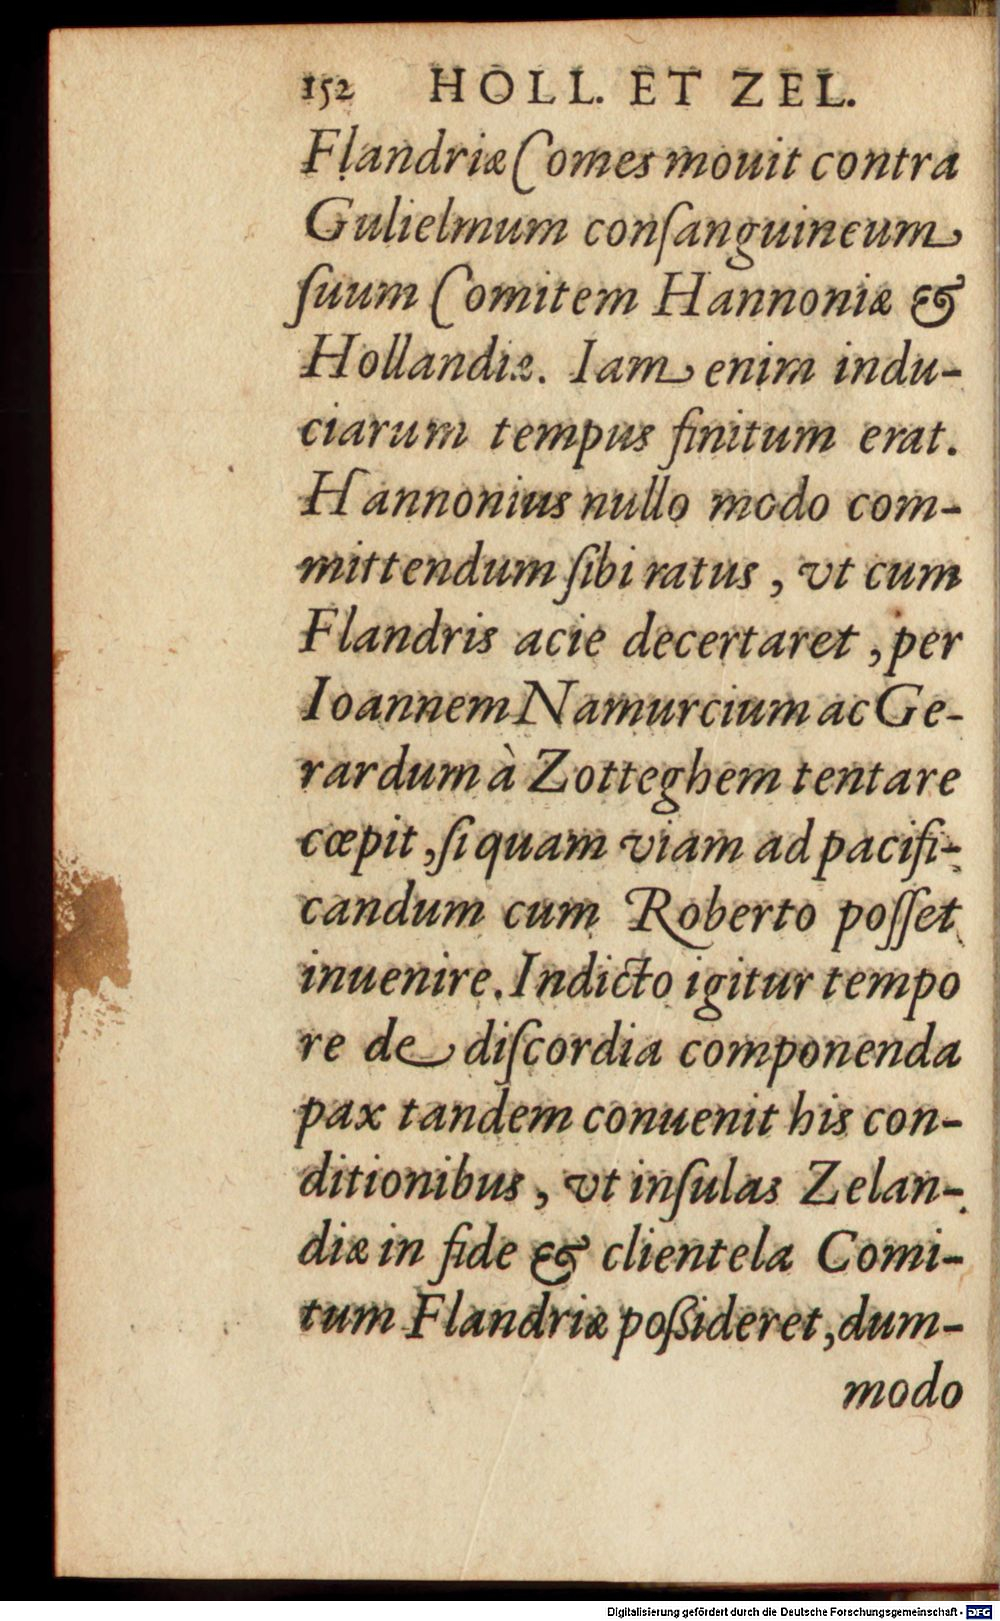 152 HOLL. ET ZEL.
Flandriæ Comes mouit contra
Gulielmum conſanguineum
ſuum Comitem Hannoniæ &
Hollandiæ. Iam enim indu-
ciarum tempus finitum erat.
Hannonius nullo modo com-
mittendum ſibi ratus, vt cum
Flandris acie decertaret, per
Ioannem Namurcium ac Ge-
rardum à Zotteghem tentare
cœpit, ſi quam viam ad pacifi-
candum cum Roberto poſſet
inuenire. Indicto igitur tempo
re de diſcordia componenda
pax tandem conuenit his con-
ditionibus, vt inſulas Zelan-
diæ in fide & clientela Comi-
tum Flandriæ poßideret, dum-
modo
Digitalisierung gefördert durch die Deutsche Forschungsgemeinschaft - DFG